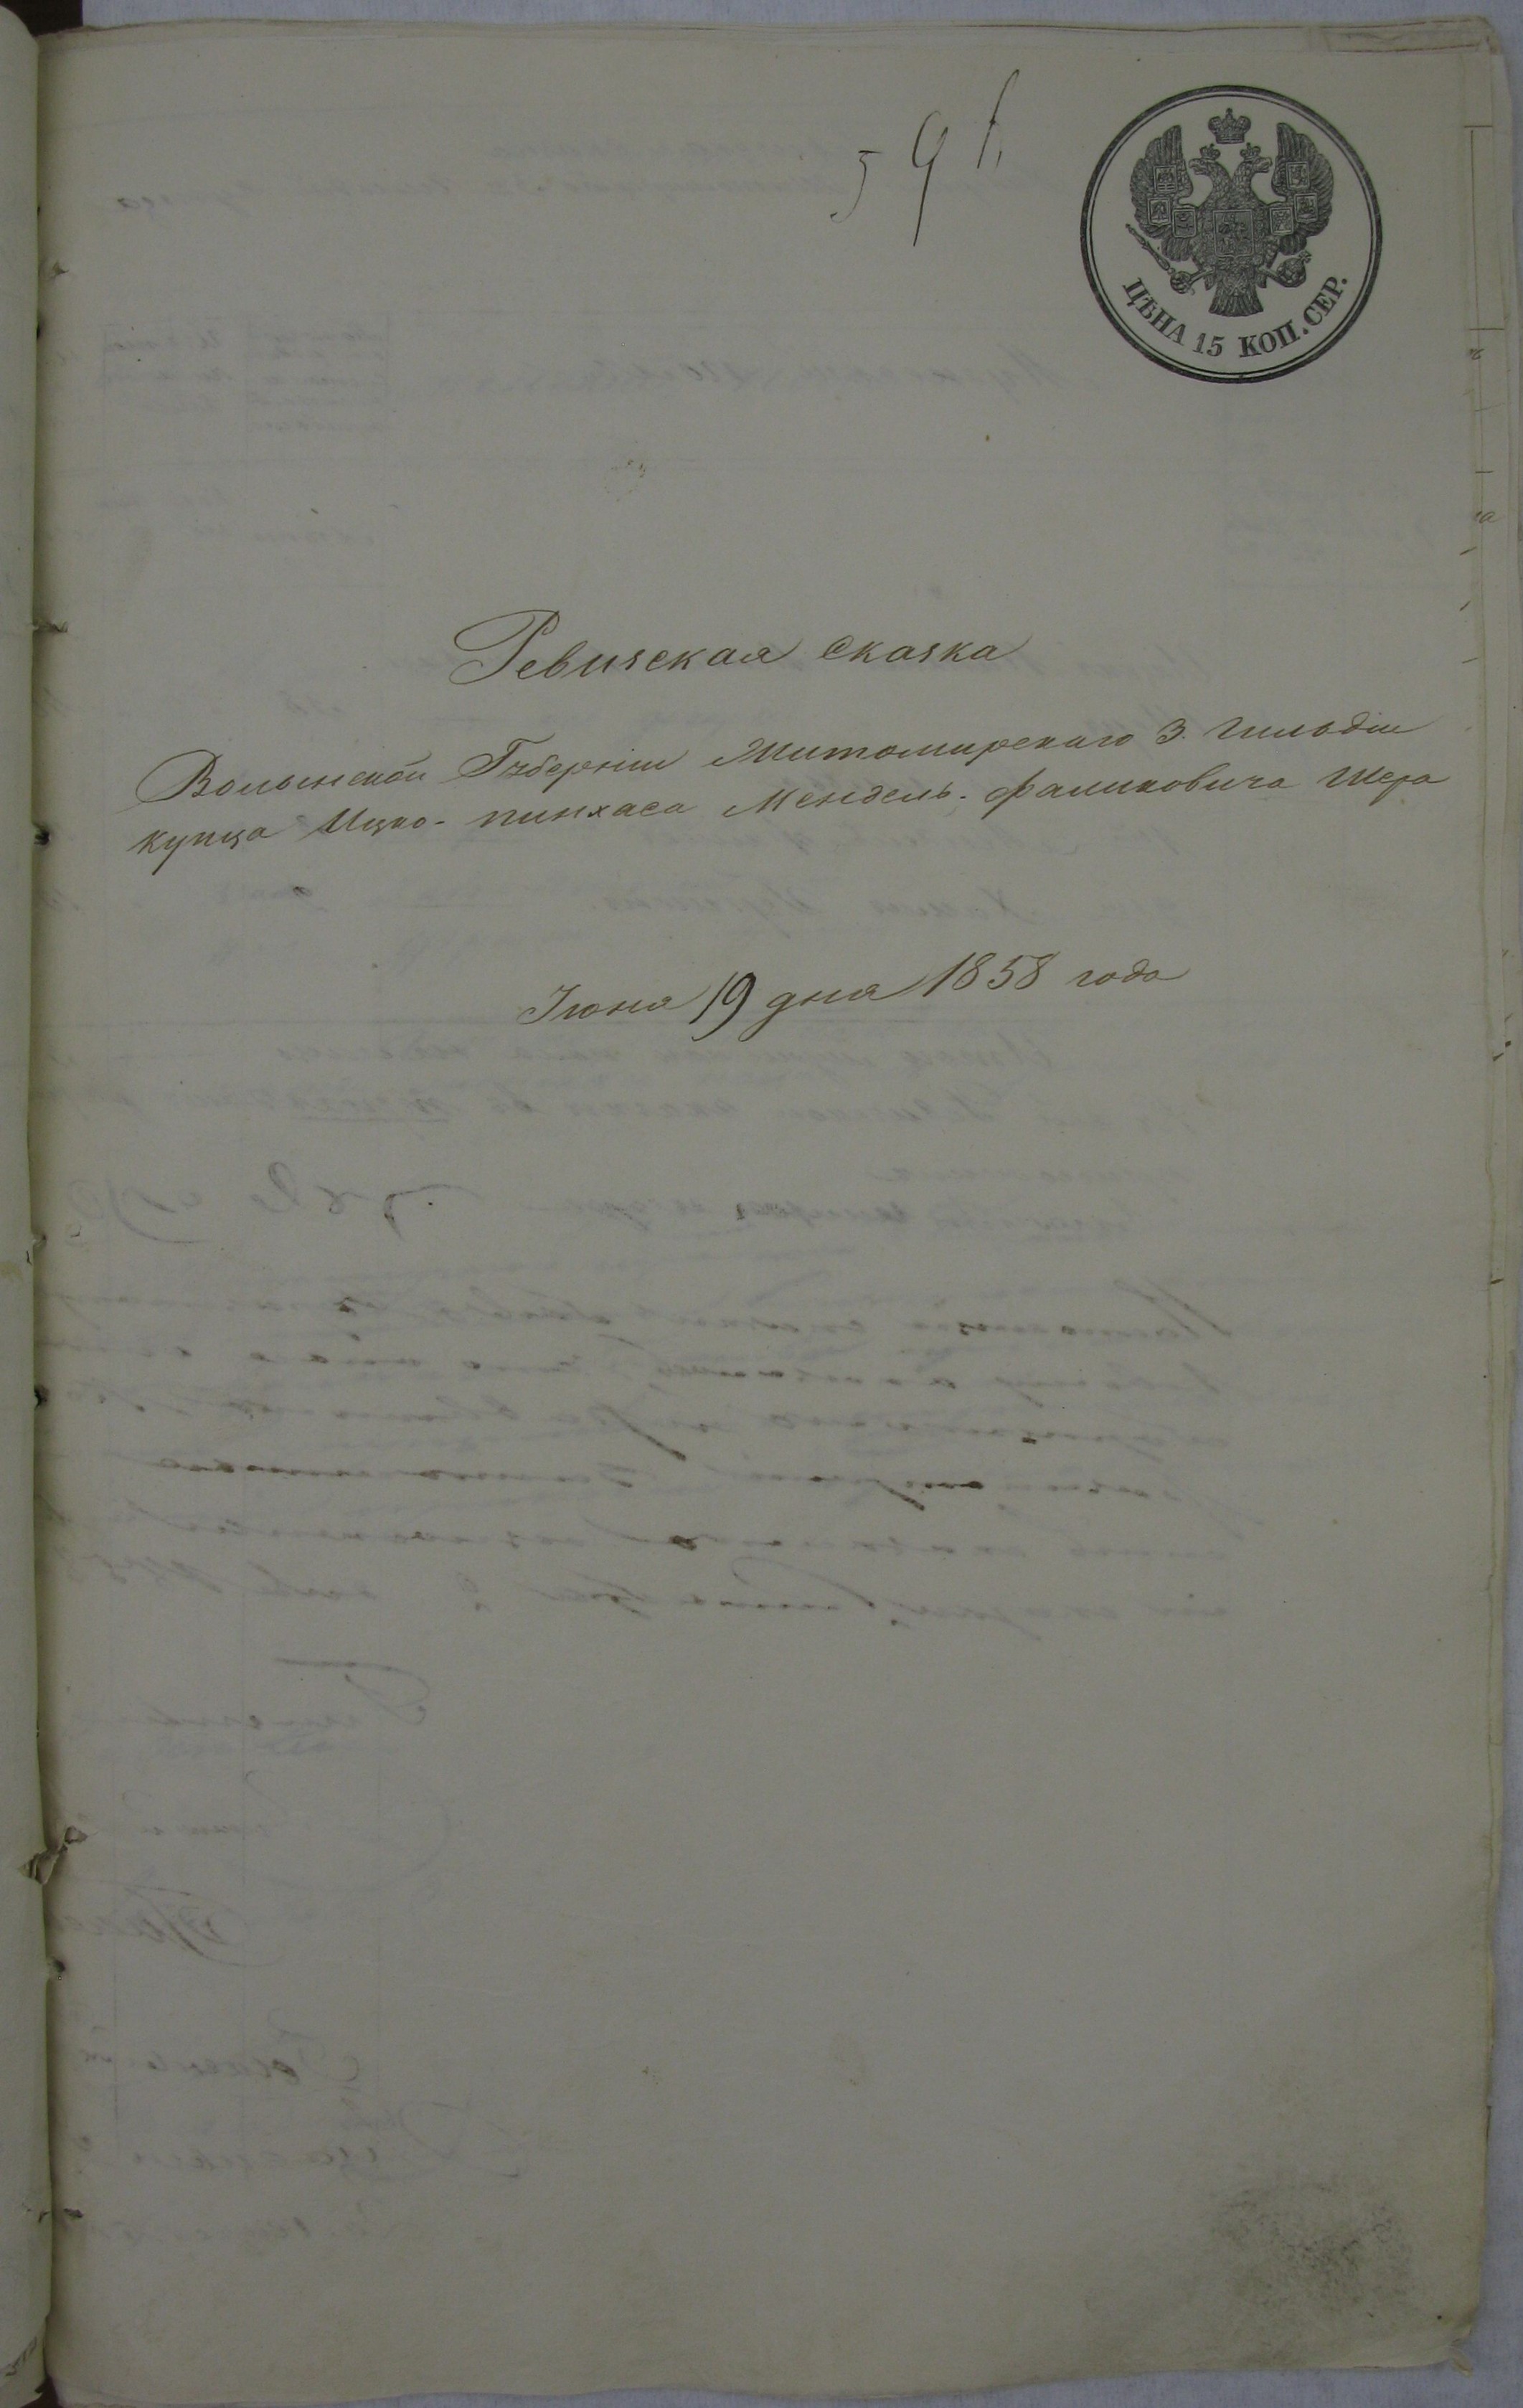 59
ЦѢНА 15 КОП. СЕР.
Ревизская сказка
Волынской Губерніи Житомирскаго 3. гильдіи
купца Ицко-пинхаса Мендель-фаликовича Шера
Іюня 19 дня 1858 года